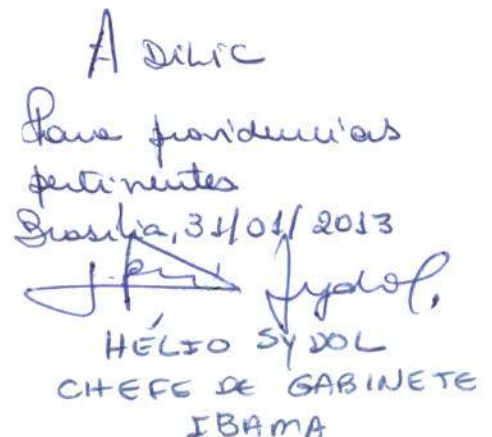 A DILIC
Para providencias
pertinentes
Brasília, 31/01/2013
Sydol.
HÉLIO SYDOL
CHEFE DE GABINETE
IBAMA